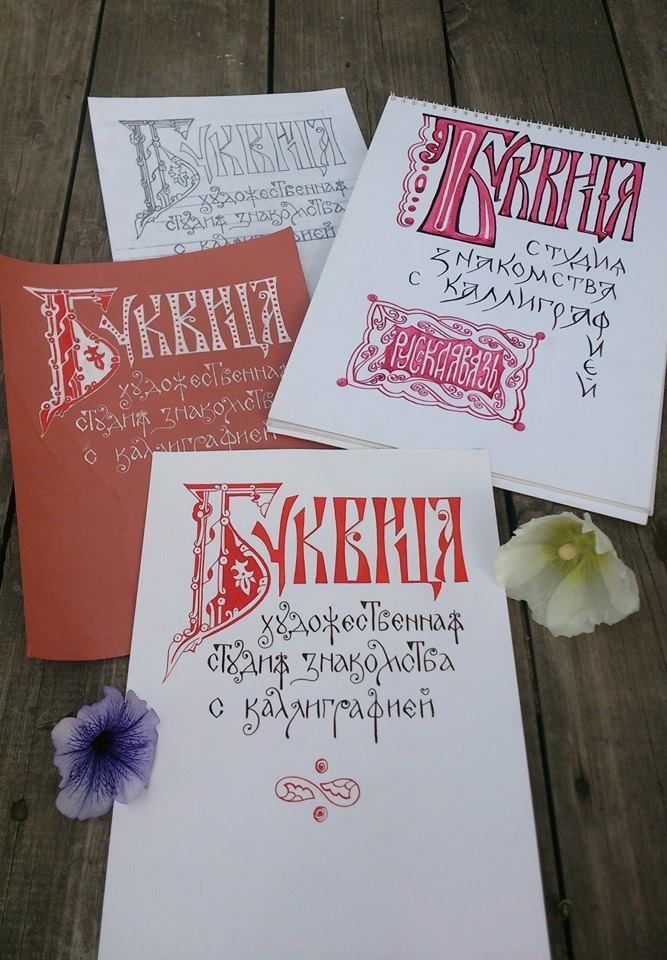 Буквица
художественная
студия знакомства
с каллиграфией
Буквица
студия
знакомства
с каллиграфией
РУСКИЯВЯЗЬ
Буквица
художественная
студия знакомства
с каллиграфией
Буквица
художественная
студия знакомства
с каллиграфией